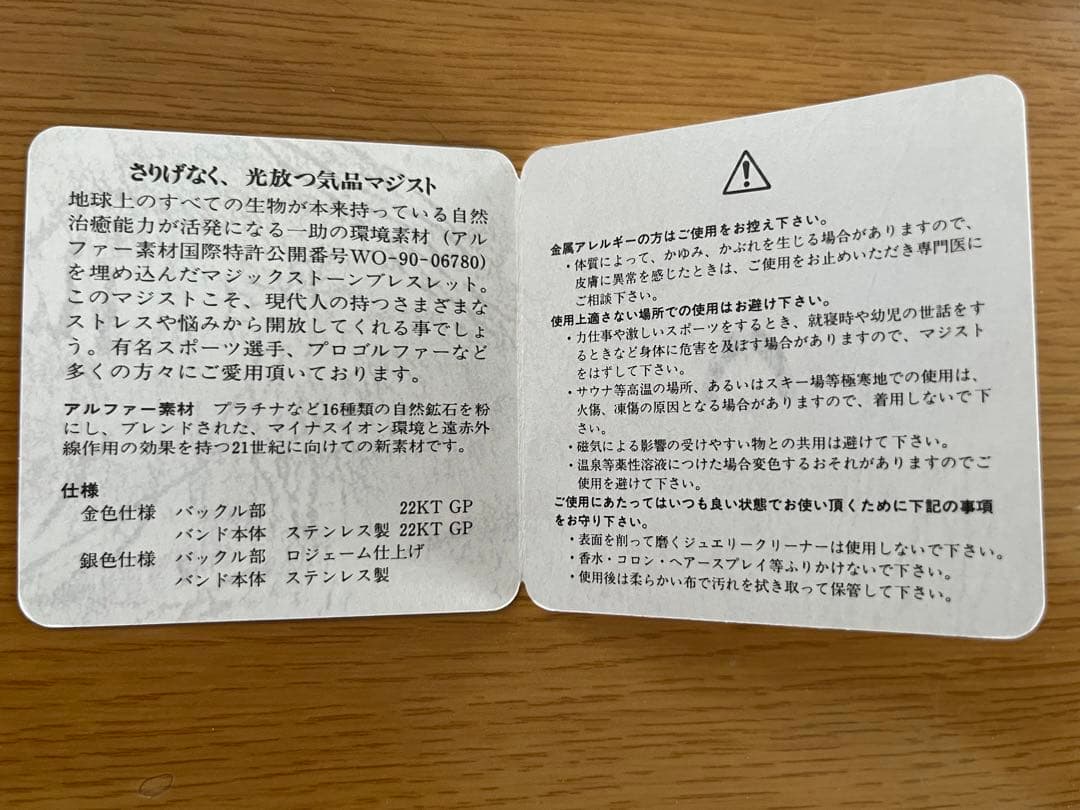 さりげなく、光放つ気品マジスト
地球上のすべての生物が本来持っている自然
治癒能力が活発になる一助の環境素材（アル
ファー素材国際特許公開番号WO-90-06780)
を埋め込んだマジックストーンブレスレット。
このマジストこそ、現代人の持つさまざまな
ストレスや悩みから開放してくれる事でしょ
う。有名スポーツ選手、プロゴルファーなど
多くの方々にご愛用頂いております。
アルファー素材　プラチナなど16種類の自然鉱石を粉
にし、ブレンドされた、マイナスイオン環境と遠赤外
線作用の効果を持つ21世紀に向けての新素材です。
仕様
金色仕様　バックル部　22KT GP
バンド本体　ステンレス製 22KT GP
銀色仕様　バックル部　ロジェーム仕上げ
バンド本体　ステンレス製
金属アレルギーの方はご使用をお控え下さい。
・体質によって、かゆみ、かぶれを生じる場合がありますので、
皮膚に異常を感じたときは、ご使用をお止めいただき専門医に
ご相談下さい。
使用上適さない場所での使用はお避け下さい。
・力仕事や激しいスポーツをするとき、就寝時や幼児の世話をす
るときなど身体に危害を及ぼす場合がありますので、マジスト
をはずして下さい。
・サウナ等高温の場所、あるいはスキー場等極寒地での使用は、
火傷、凍傷の原因となる場合がありますので、着用しないで下
さい。
・磁気による影響の受けやすい物との共用は避けて下さい。
・温泉等薬性溶液につけた場合変色するおそれがありますのでご
使用を避けて下さい。
ご使用にあたってはいつも良い状態でお使い頂くために下記の事項
をお守り下さい。
・表面を削って磨くジュエリークリーナーは使用しないで下さい。
・香水・コロン・ヘアースプレイ等ふりかけないで下さい。
・使用後は柔らかい布で汚れを拭き取って保管して下さい。